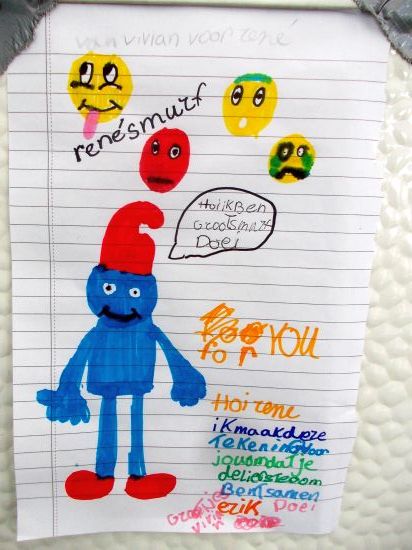 van vivian voor rené
renésmurf
Hoi ik Ben
GrootSmurf
Doei
for YOU
Hoi rene
ik maak deze
Tekening voor
jou omdat je
de liefste oom
Bent samen
erik Doei
Groetjes